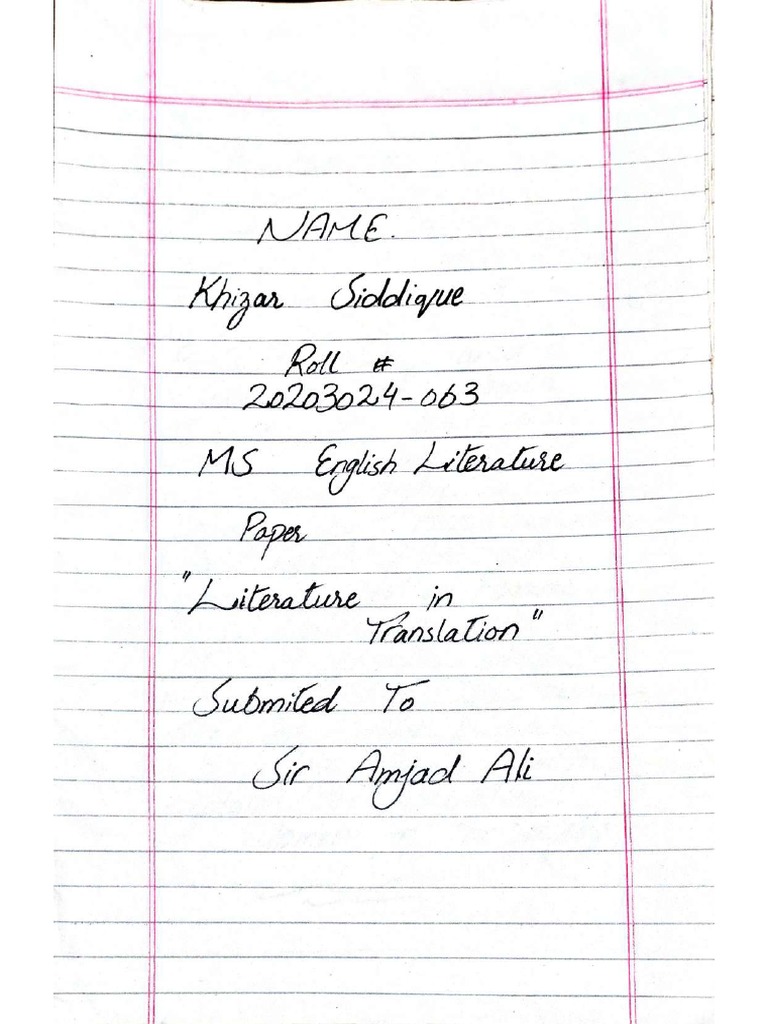 NAME.
Khizar Siddique
Roll #
20203024-063
MS English Literature
Paper
"Literature in
Translation"
Submited To
Sir Amjad Ali